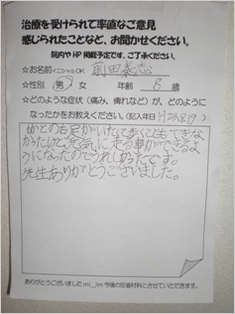 治療を受けられて率直なご意見
感じられたことなど、お聞かせください。
院内や HP 掲載予定です。ご了承ください。
☆お名前 イニシャルOK 前田
☆性別 男・女 年齢 8 歳
☆どのような症状（痛み、痺れなど）が、どのように
なったかをお教えください。（記入年日 H23.8.19）
右足がいたくて歩くこともできな
かったけど元気に走る事ができるよ
うになったのでうれしかったです。
先生ありがとうございました。
ありがとうございました m(__)m 今後の反省材料とさせていただきます。